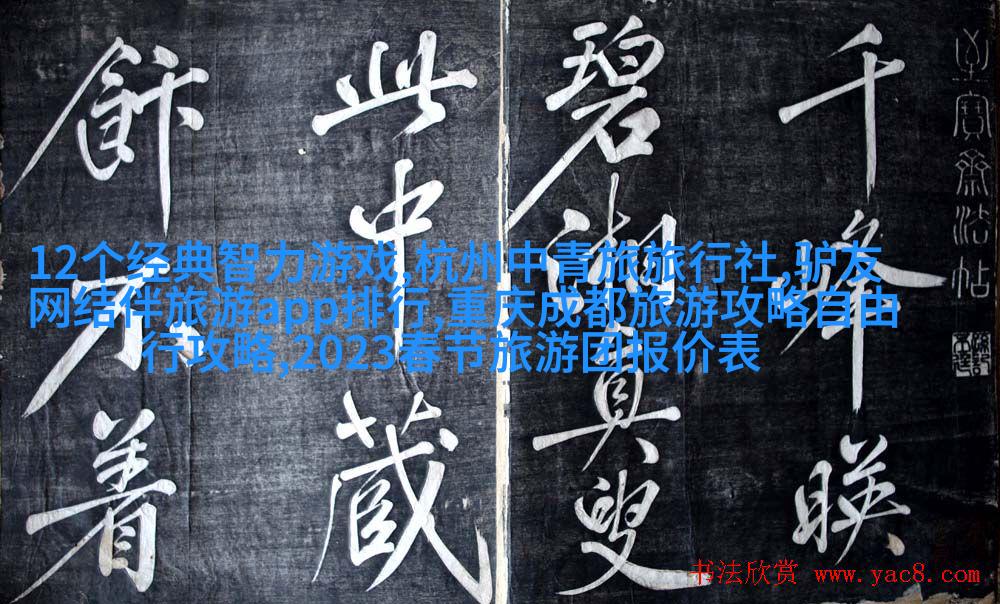 至寶齋法帖
千峰映
碧湘真叟
此中藏
飰不着
12个经典智力游戏,杭州中青旅旅行社,驴友
网结伴旅游app排行,重庆成都旅游攻略自由
行攻略,2023春节旅游团报价表
书法欣赏 www.yac8.com